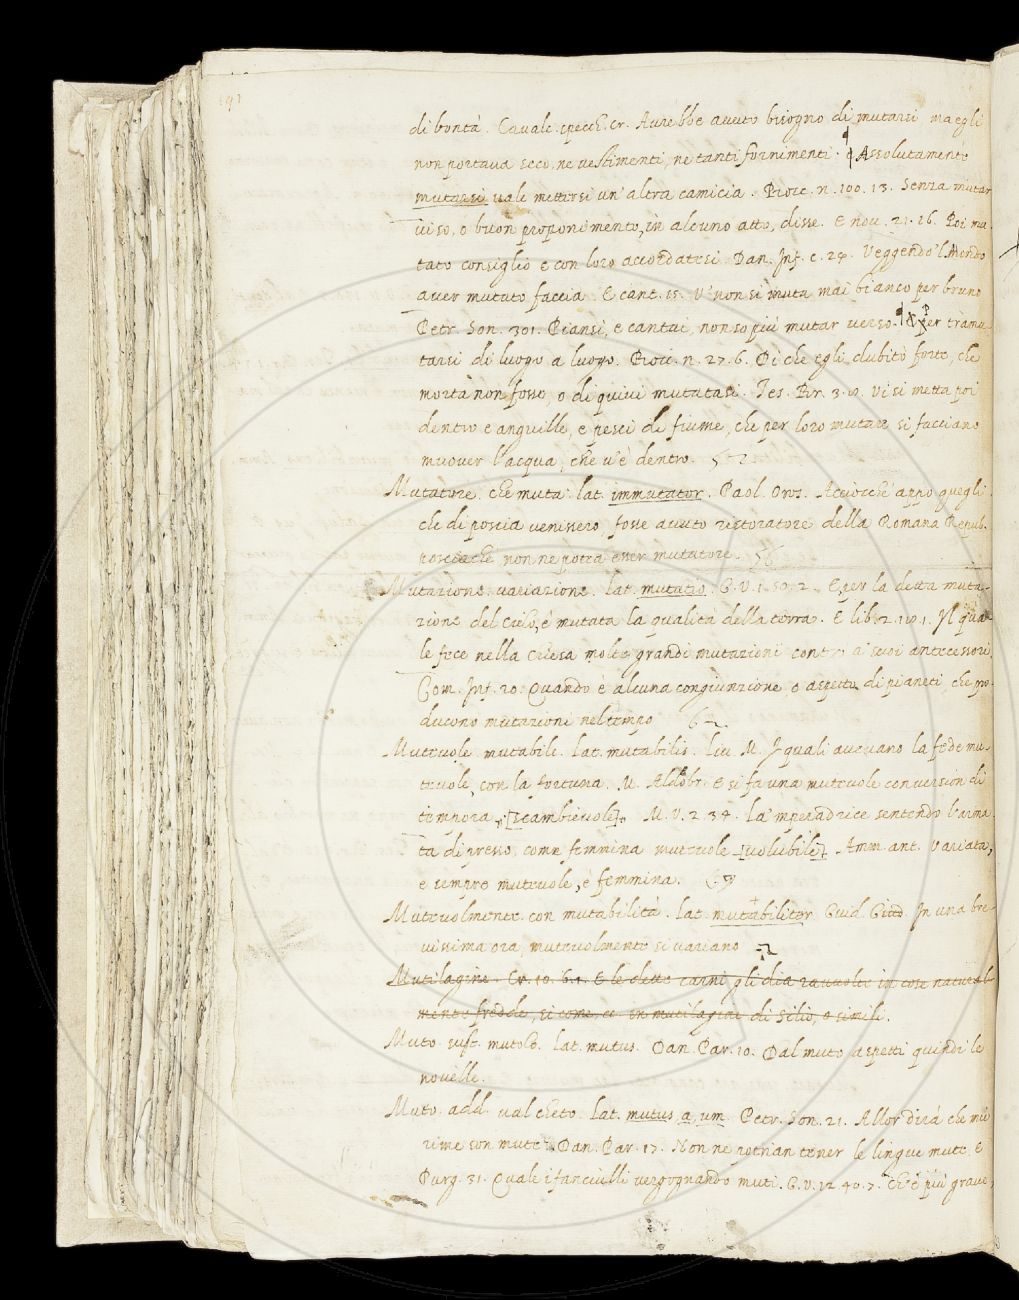 di bontà. Cavalc. specch. cr. Avrebbe avuto bisogno di mutarsi ma egli
non portava seco ne vestimenti, ne tanti fornimenti. Assolutamente
mutarsi vale mettersi un' altra camicia. Bocc. n. 100. 13. Senza mutar
viso, o buon proponimento, in alcuno atto, disse. E nov. 21. 16. Poi mu-
tato consiglio e con loro accordatesi. Dan. Inf. c. 24. Veggendo 'l Mondo
aver mutato faccia. E cant. 15. V' non si muta mai bianco per bruno
Petr. Son. 301. Piansi, e cantai, non so più mutar verso. Per tramu-
tarsi di luogo a luogo. Bocc. n. 27. 6. Di che egli dubitò forte, che
morta non fosse, o di quivi mutatasi. Tes. Br. 3. Vi si metta poi
dentro e anguille, e pesci di fiume, che per loro mutare si facciano
muover l'acqua, che v'è dentro.
Mutatore. che muta. lat. immutator. Paol. Oros. Acciocchè appo quegli
che di poscia venissero, fosse avuto ristoratore della Romana Repub.
posciachè non ne potea esser mutatore.
Mutazione. variazione. lat. mutatio. G. V. 1. 50. 2. E per la detta muta-
zione del Cielo, è mutata la qualità della terra. E lib. 2. Il qua-
le fece nella Chiesa molte grandi mutazioni contro a' suoi antecessori
Com. Inf. 20. Quando è alcuna congiunzione o aspetto di pianeti, che pro-
ducono mutazioni nel tempo 62.
Mutevole. mutabile. lat. mutabilis. Liv. M. I quali avevano la fede mu-
tevole, con la fortuna. M. Aldobr. E si fa una mutevole conversion di
tempora [scambievole] M. V. 2. 34. La 'mperadrice sentendo l'arma-
ta di presso, come femmina mutevole [volubile] Amm. ant. Variata,
e sempre mutevole, è femmina.
Mutevolmente. con mutabilità. lat. mutabiliter Guid. Giud. In una bre-
vissima ora, mutevolmente si variano
Mutilagine. Cr. 10. 6. 1. E le dette carni gli dia ravvolte in cose natural-
mente fredde, si come, ec. in mutilagine di silio, o simili.
Muto. sust. mutolo. lat. mutus. Dan. Par. 10. Dal muto aspetti quindi le
novelle.
Muto. add. val cheto. lat. mutus, a, um. Petr. Son. 21. Allor dirà che mie
rime son mute. Dan. Par. 17. Non ne potrian tener le lingue mute. E
Purg. 31. Quale i fanciulli vergognando muti. G. V. 12. 40. 7. Ch'è più grave,